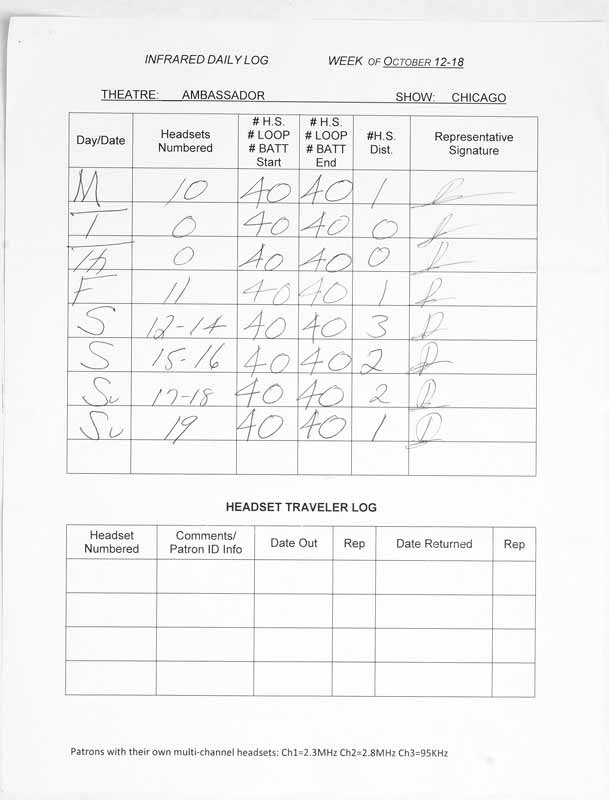 INFRARED DAILY LOG WEEK OF OCTOBER 12-18
THEATRE: AMBASSADOR SHOW: CHICAGO
Day/Date Headsets Numbered # H.S. # LOOP # BATT Start # H.S. # LOOP # BATT End #H.S. Dist. Representative Signature
M 10 40 40 1
T 0 40 40 0
Th 0 40 40 0
F 11 40 40 1
S 12-14 40 40 3
S 15-16 40 40 2
Su 17-18 40 40 2
Su 19 40 40 1
HEADSET TRAVELER LOG
Headset Numbered Comments/ Patron ID Info Date Out Rep Date Returned Rep
Patrons with their own multi-channel headsets: Ch1=2.3MHz Ch2=2.8MHz Ch3=95KHz